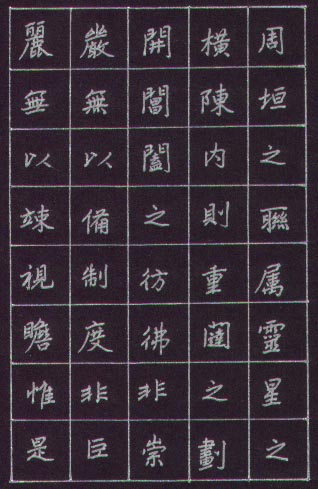 周垣之聯属靈星之
橫陳内則重闥之劃
開閶闔之彷彿非崇
嚴無以備制度非巨
麗無以竦視瞻惟是